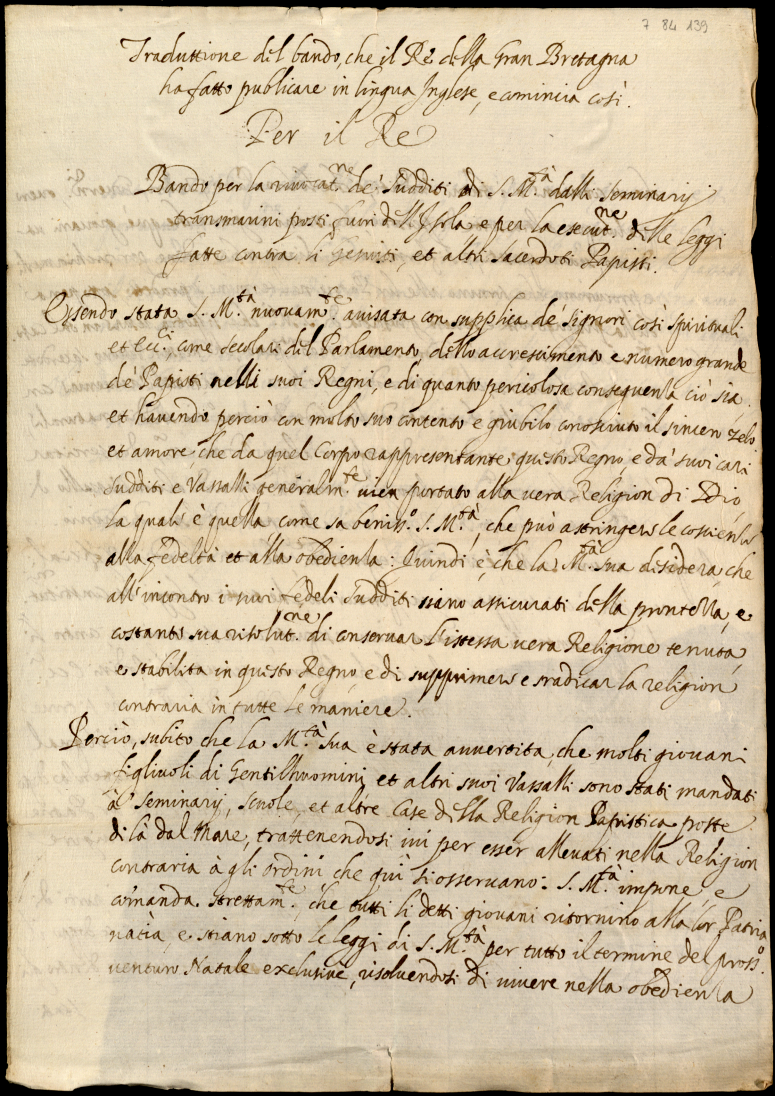 7 84 139
Traduttione del bando, che il Rè della Gran Bretagna
ha fatto publicare in lingua Inglese, e comincia così.
Per il Re
Bando per la riuocat.ne de' Sudditi di S. M.tà dalli Seminarij
transmarini posti fuori dell'Isola e per la esecut.ne delle leggi
fatte contra li Gesuiti, et altri sacerdoti Papisti.
Essendo stata S. M.tà nuouam.te auisata con supplica de' Signori così spirituali
et Ecc.ci, come secolari del Parlamento, dello accrescimento e numero grande
de' Papisti nelli suoi Regni, e di quanto pericolosa conseguenza ciò sia.
et hauendo perciò con molto suo contento e giubilo conosciuto il sincero zelo
et amore, che da quel Corpo rappresentante questo Regno, e da' suoi cari
sudditi e Vassalli generalm.te uien portato alla uera Religion di Dio,
la quale è quella come sa beniss.o S. M.tà, che può astringere le coscienze
alla fedeltà et alla obedienza: Quindi è, che la M.tà sua desidera, che
all'incontro i suoi fedeli sudditi siano assicurati della prontezza, e
costante sua risolut.ne di conseruar l'istessa uera Religione tenuta,
e stabilita in questo Regno, e di supprimere e sradicar la religion
contraria in tutte le maniere.
Perciò, subito che la M.tà sua è stata auuertita, che molti giouani
figliuoli di Gentilhuomini, et altri suoi Vassalli sono stati mandati
à Seminarij, scuole, et altre Case della Religion Papistica poste
di là dal Mare, trattenendosi iui per esser alleuati nella Religion
contraria à gli ordini che quì si osseruano: S. M.tà impone, e
comanda strettam.te, che tutti li detti giouani ritornino alla lor Patria
natia, e stiano sotto le leggi di S. M.tà per tutto il termine del pross.o
uenturo Natale exclusiuè, risoluendosi di uiuere nella obedienza